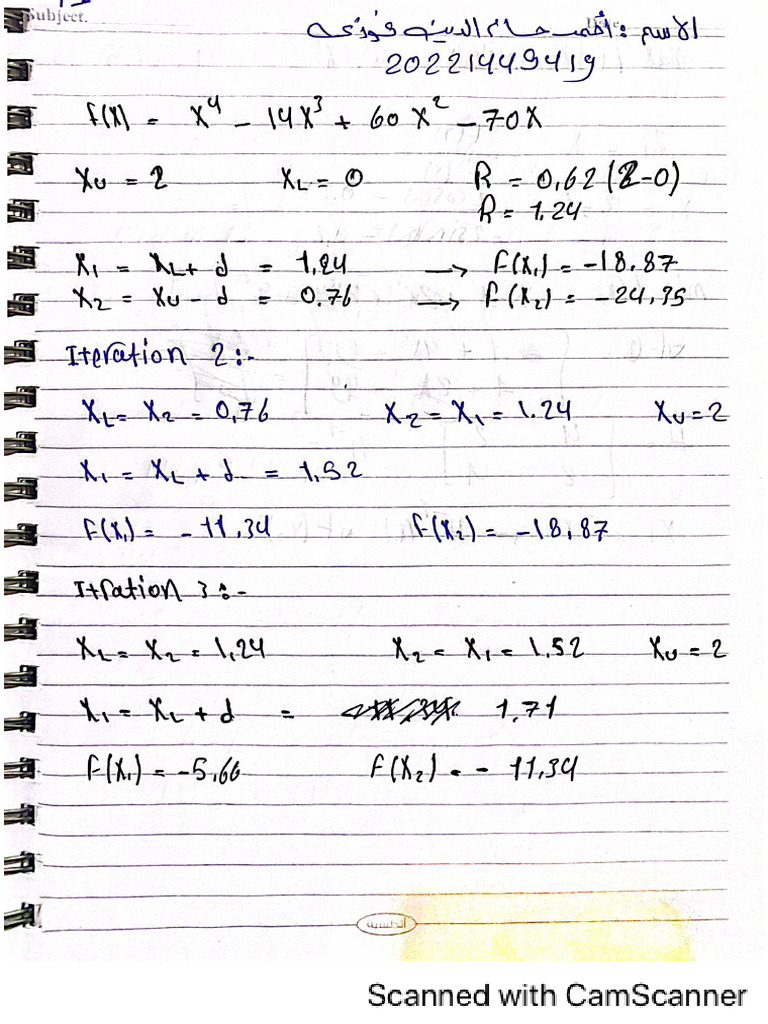 Subject.
الاسم : أحمد حسام الدين فوزي
20221449419
f(x) = x⁴ - 14x³ + 60x² - 70x
Xu = 2 XL = 0 R = 0,62 (2-0)
R = 1.24
X₁ = XL + d = 1,24 → f(X₁) = -18.87
X₂ = Xu - d = 0.76 → f(X₂) = -24,35
Iteration 2:-
XL = X₂ = 0,76 X₂ = X₁ = 1.24 Xu = 2
X₁ = XL + d = 1,52
f(X₁) = - 11,34 f(X₂) = -18,87
Itration 3:-
XL = X₂ = 1,24 X₂ = X₁ = 1.52 Xu = 2
X₁ = XL + d = 1,71
f(X₁) = -5,66 f(X₂) = - 11.34
Scanned with CamScanner